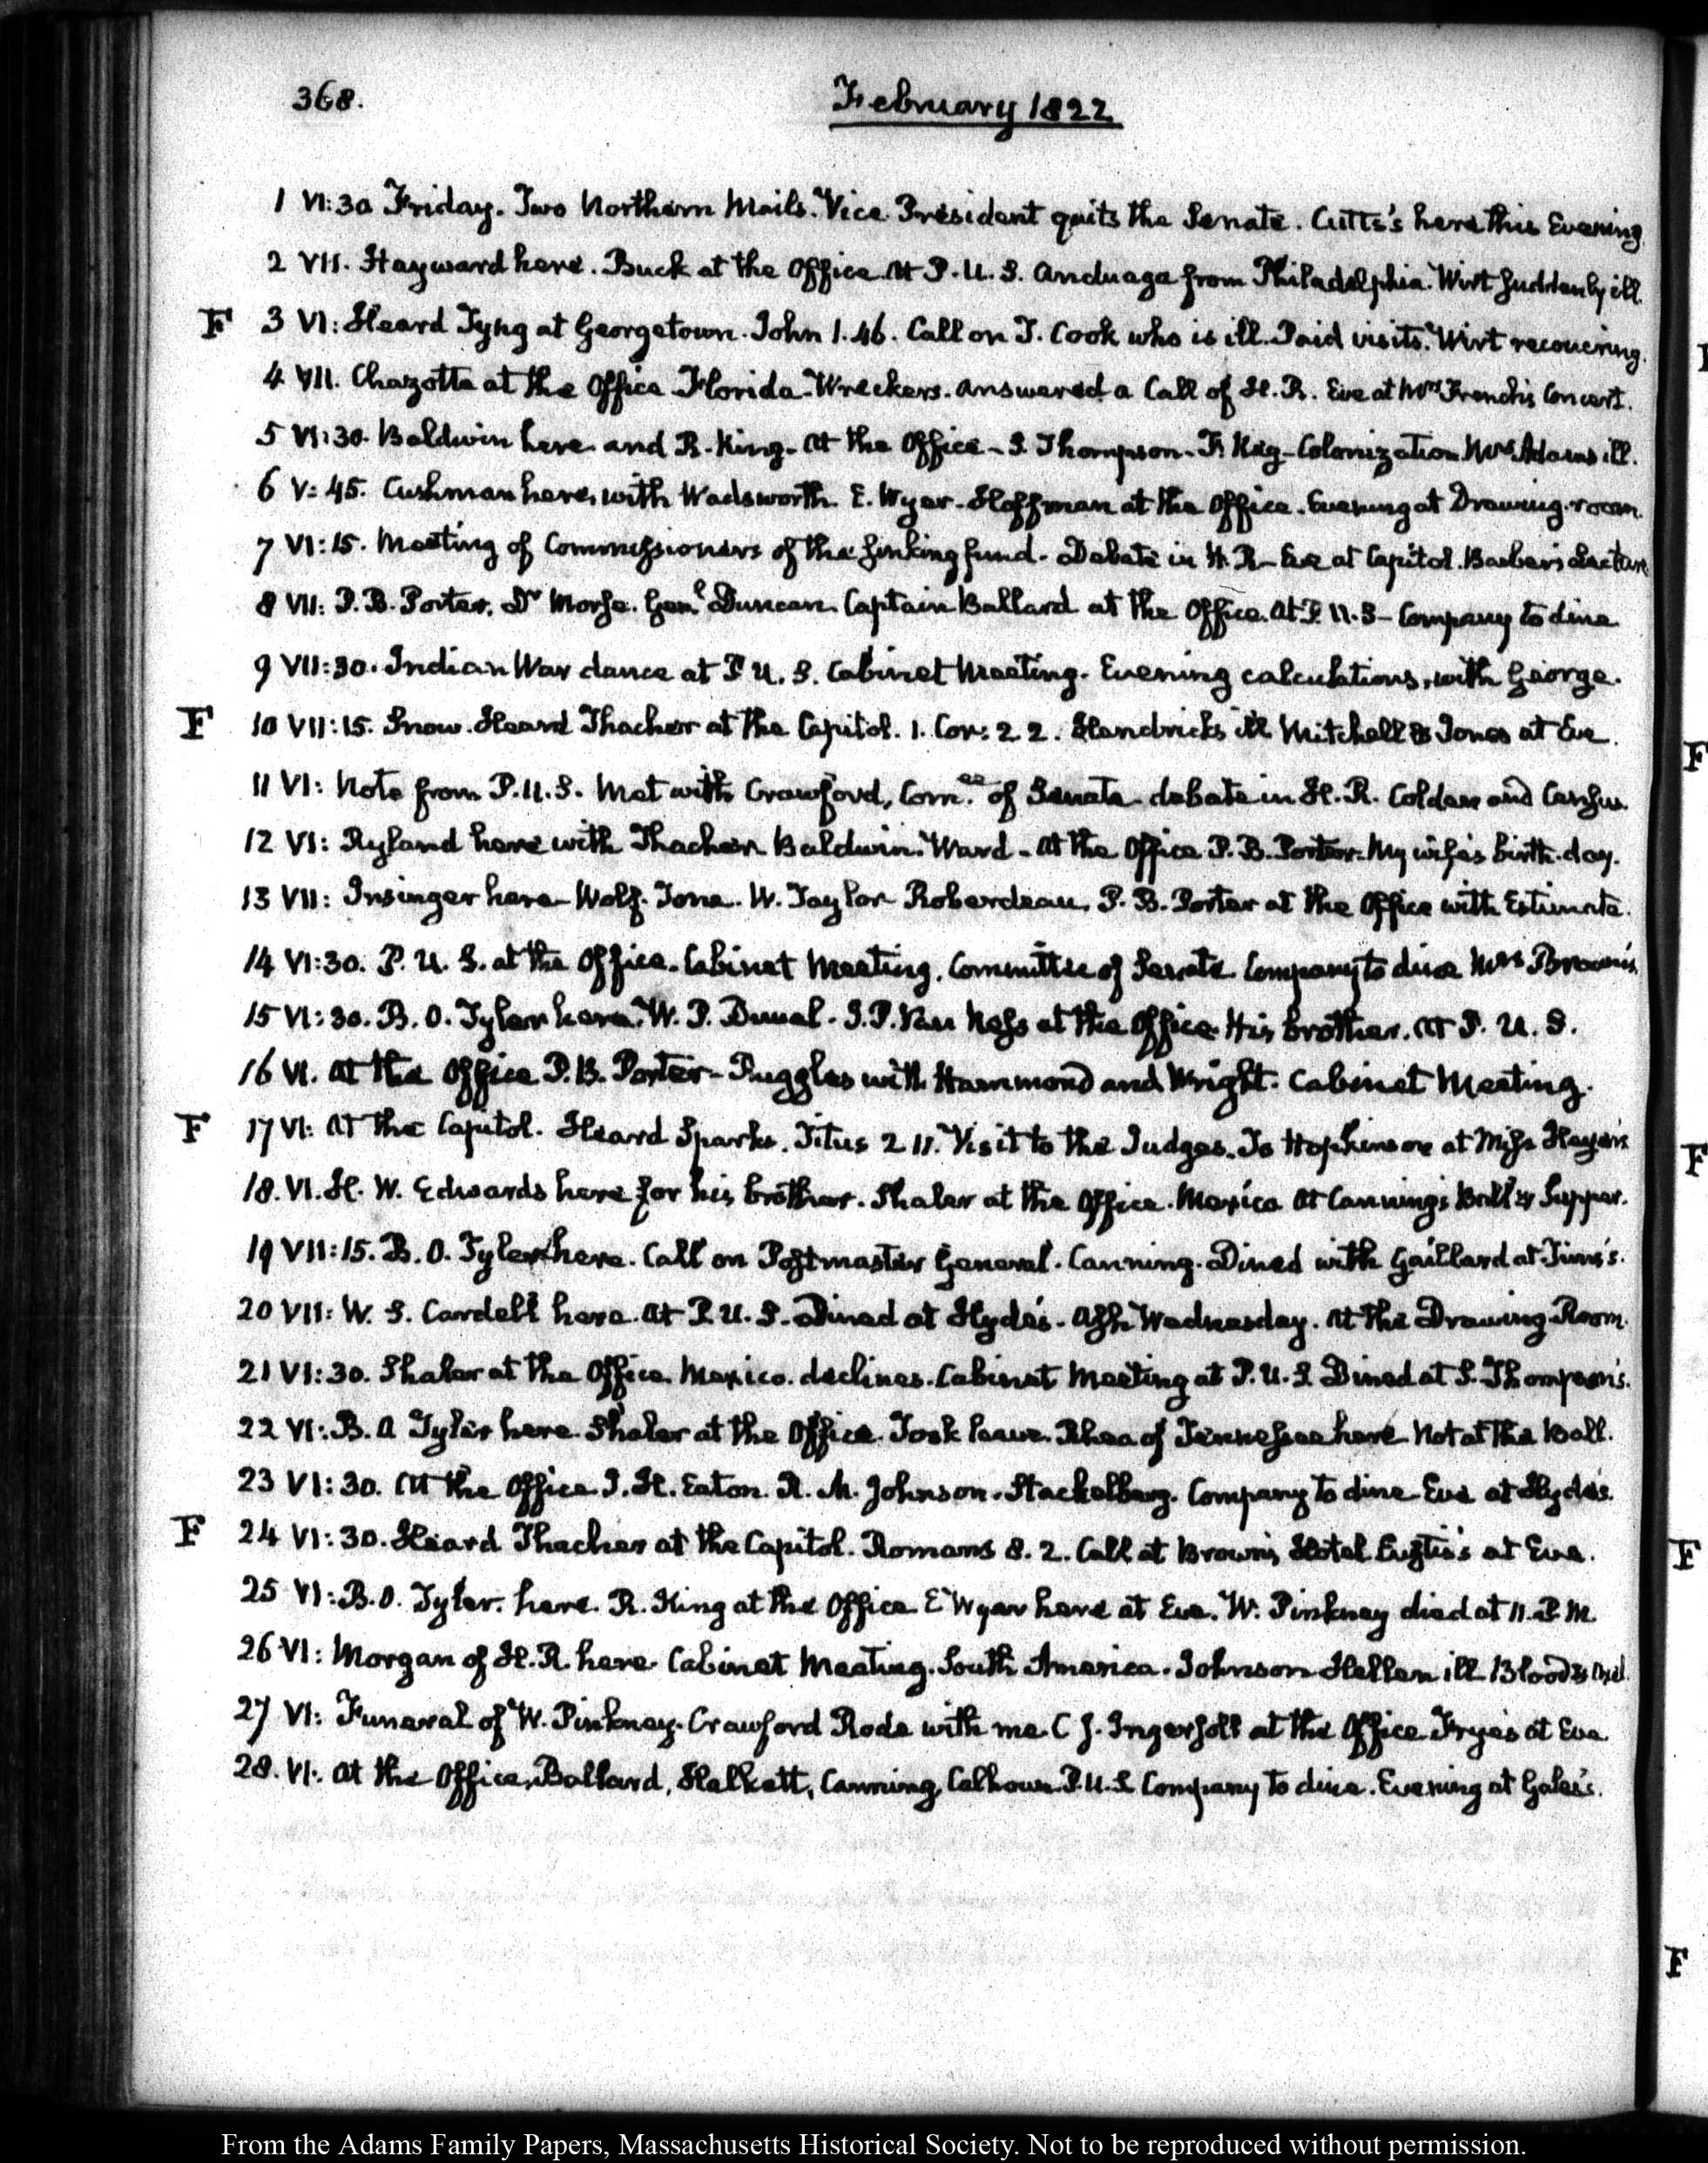 368.
February 1822
1 VI:30 Friday. Two Northern Mails. Vice President quits the Senate. Cutts's here this Evening.
2 VII. Hayward here. Buck at the Office. At P. U. S. Anduaga from Philadelphia. Wirt suddenly ill.
F 3 VI: Heard Tyng at Georgetown. John 1. 46. Call on J. Cook who is ill. Paid visits. Wirt recovering.
4 VII. Chazotte at the Office. Florida. Wreckers. Answered a Call of H. R. Eve at Mrs French's Concert.
5 VI:30. Baldwin here and R. King. At the Office - S. Thompson - F. Key - Colonization Mrs Adams ill.
6 V:45. Cushman here, with Wadsworth. E. Wyer. Hoffman at the Office. Evening at Drawing-room.
7 VI:15. Meeting of Commissioners of the sinking fund. Debate in H. R - Eve at Capitol. Barber's Lecture
8 VII: P. B. Porter. Dr Morse. Genl Duncan. Captain Ballard at the Office. At P. U. S - Company to dine
9 VII:30. Indian War dance at P. U. S. Cabinet Meeting. Evening calculations, with George.
F 10 VII:15. Snow. Heard Thacher at the Capitol. 1. Cor: 2 2. Hendricks ill Mitchell & Jones at Eve.
11 VI: Note from P. U. S. Met with Crawford, Comee of Senate debate in H. R. Colden and Census
12 VI: Ryland here with Thacher Baldwin. Ward - At the Office P. B. Porter. My wife's birth-day.
13 VII: Insinger here. Wolf. Tone. W. Taylor Roberdeau. P. B. Porter at the Office with Estimate.
14 VI:30. P. U. S. at the Office. Cabinet Meeting. Committee of Senate Company to dine Mrs Brown's
15 VI:30. B. O. Tyler here. W. P. Duval. J. P. Van Ness at the Office. His brother. At P. U. S.
16 VI. At the Office P. B. Porter - Ruggles with Hammond and Wright. Cabinet Meeting.
F 17 VI: At the Capitol. Heard Sparks. Titus 2 11. Visit to the Judges. To Hopkinson at Miss Heyer's
18. VI. H. W. Edwards here for his brother. Shaler at the Office. Mexico At Canning's Ball & Supper.
19 VII:15. B. O. Tyler here. Call on Postmaster General. Canning. Dined with Gaillard at Tims's.
20 VII: W. S. Cardell here. At P. U. S. Dined at Hyde's. Ash Wednesday. At the Drawing Room.
21 VI:30. Shaler at the Office. Mexico. declines. Cabinet Meeting at P. U. S. Dined at S. Thompson's.
22 VI: B. O Tyler here. Shaler at the Office. Took leave. Rhea of Tennessee here Not at the Ball.
23 VI:30. At the Office J. H. Eaton. R. M. Johnson. Stackelberg. Company to dine Eve at Hyde's.
F 24 VI:30. Heard Thacher at the Capitol. Romans 8. 2. Call at Brown's Hotel. Eustis's at Eve.
25 VI: B. O. Tyler. here. R. King at the Office E Wyer here at Eve. W. Pinkney died at 11. P. M.
26 VI: Morgan of H. R. here. Cabinet Meeting. South America. Johnson Hellen ill Blooded
27 VI: Funeral of W. Pinkney. Crawford Rode with me. C J. Ingersoll at the Office Frye's at Eve.
28. VI: At the Office, Ballard, Halkett, Canning, Calhoun. P. U. S. Company to dine. Evening at Gales's.
F
F
F
F
From the Adams Family Papers, Massachusetts Historical Society. Not to be reproduced without permission.